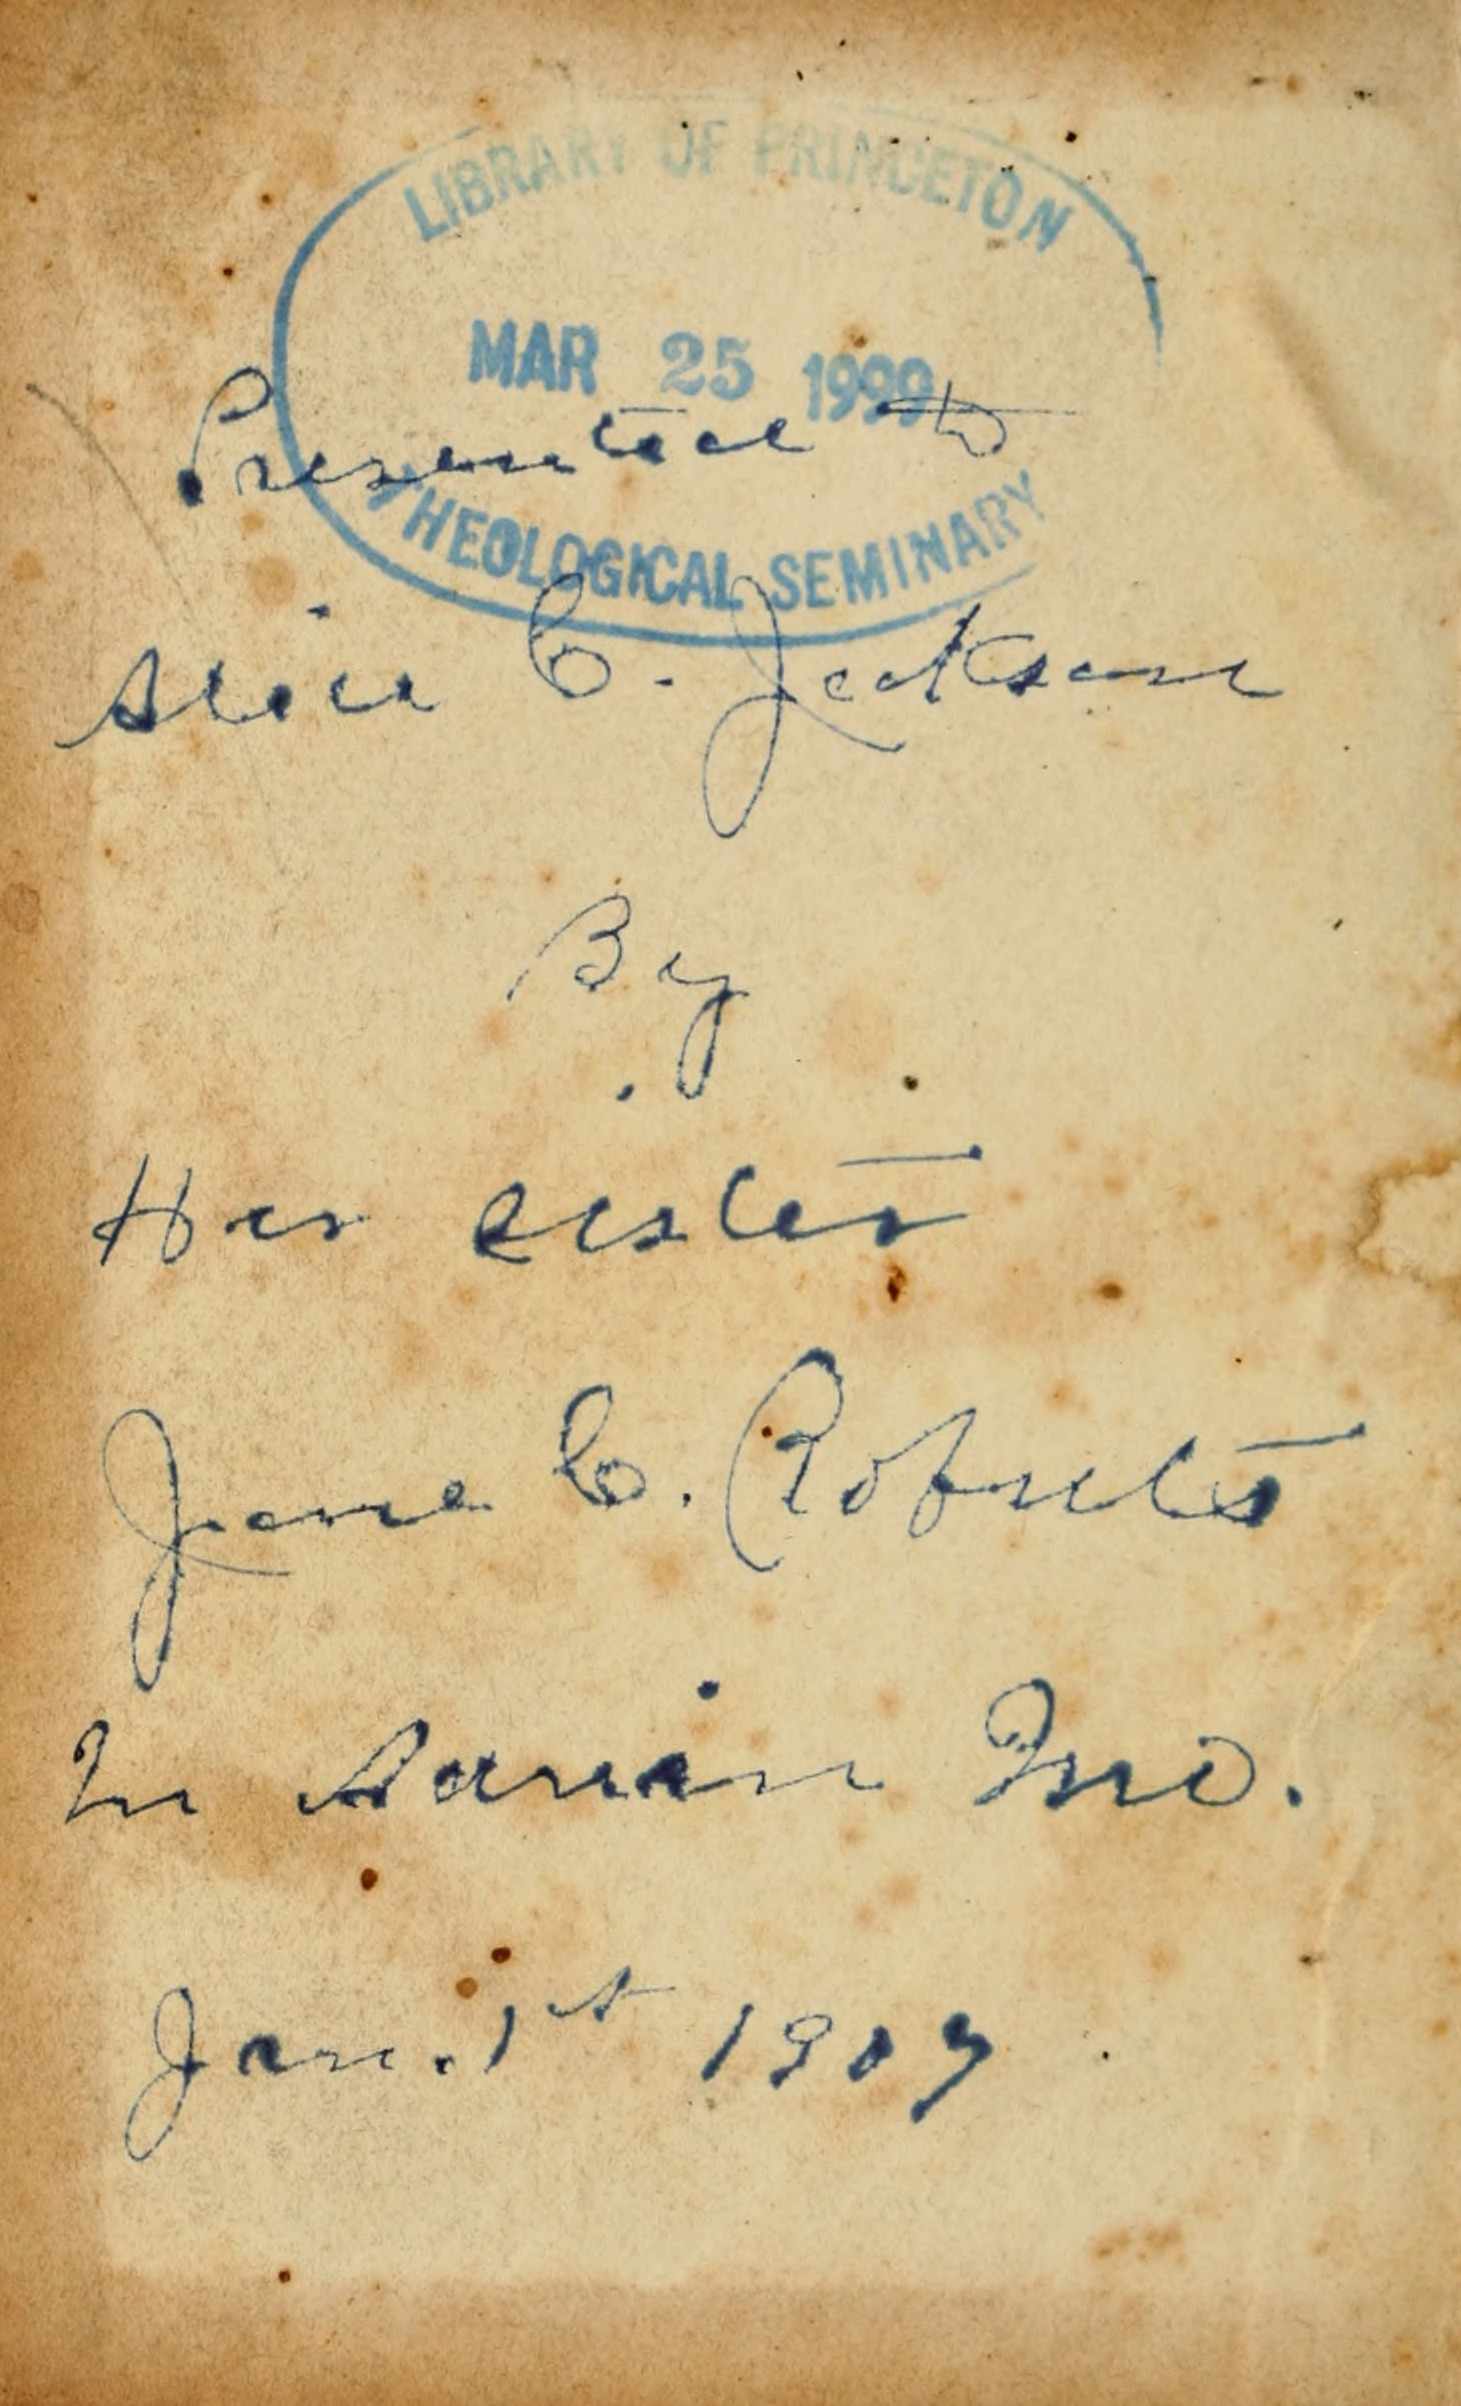 LIBRARY OF PRINCETON
MAR 25 1999
Presented to
THEOLOGICAL SEMINARY
Alice C. Jackson
By
Her sister
Jane C. Roberts
In Adrian Mo.
Jan. 1st 1909